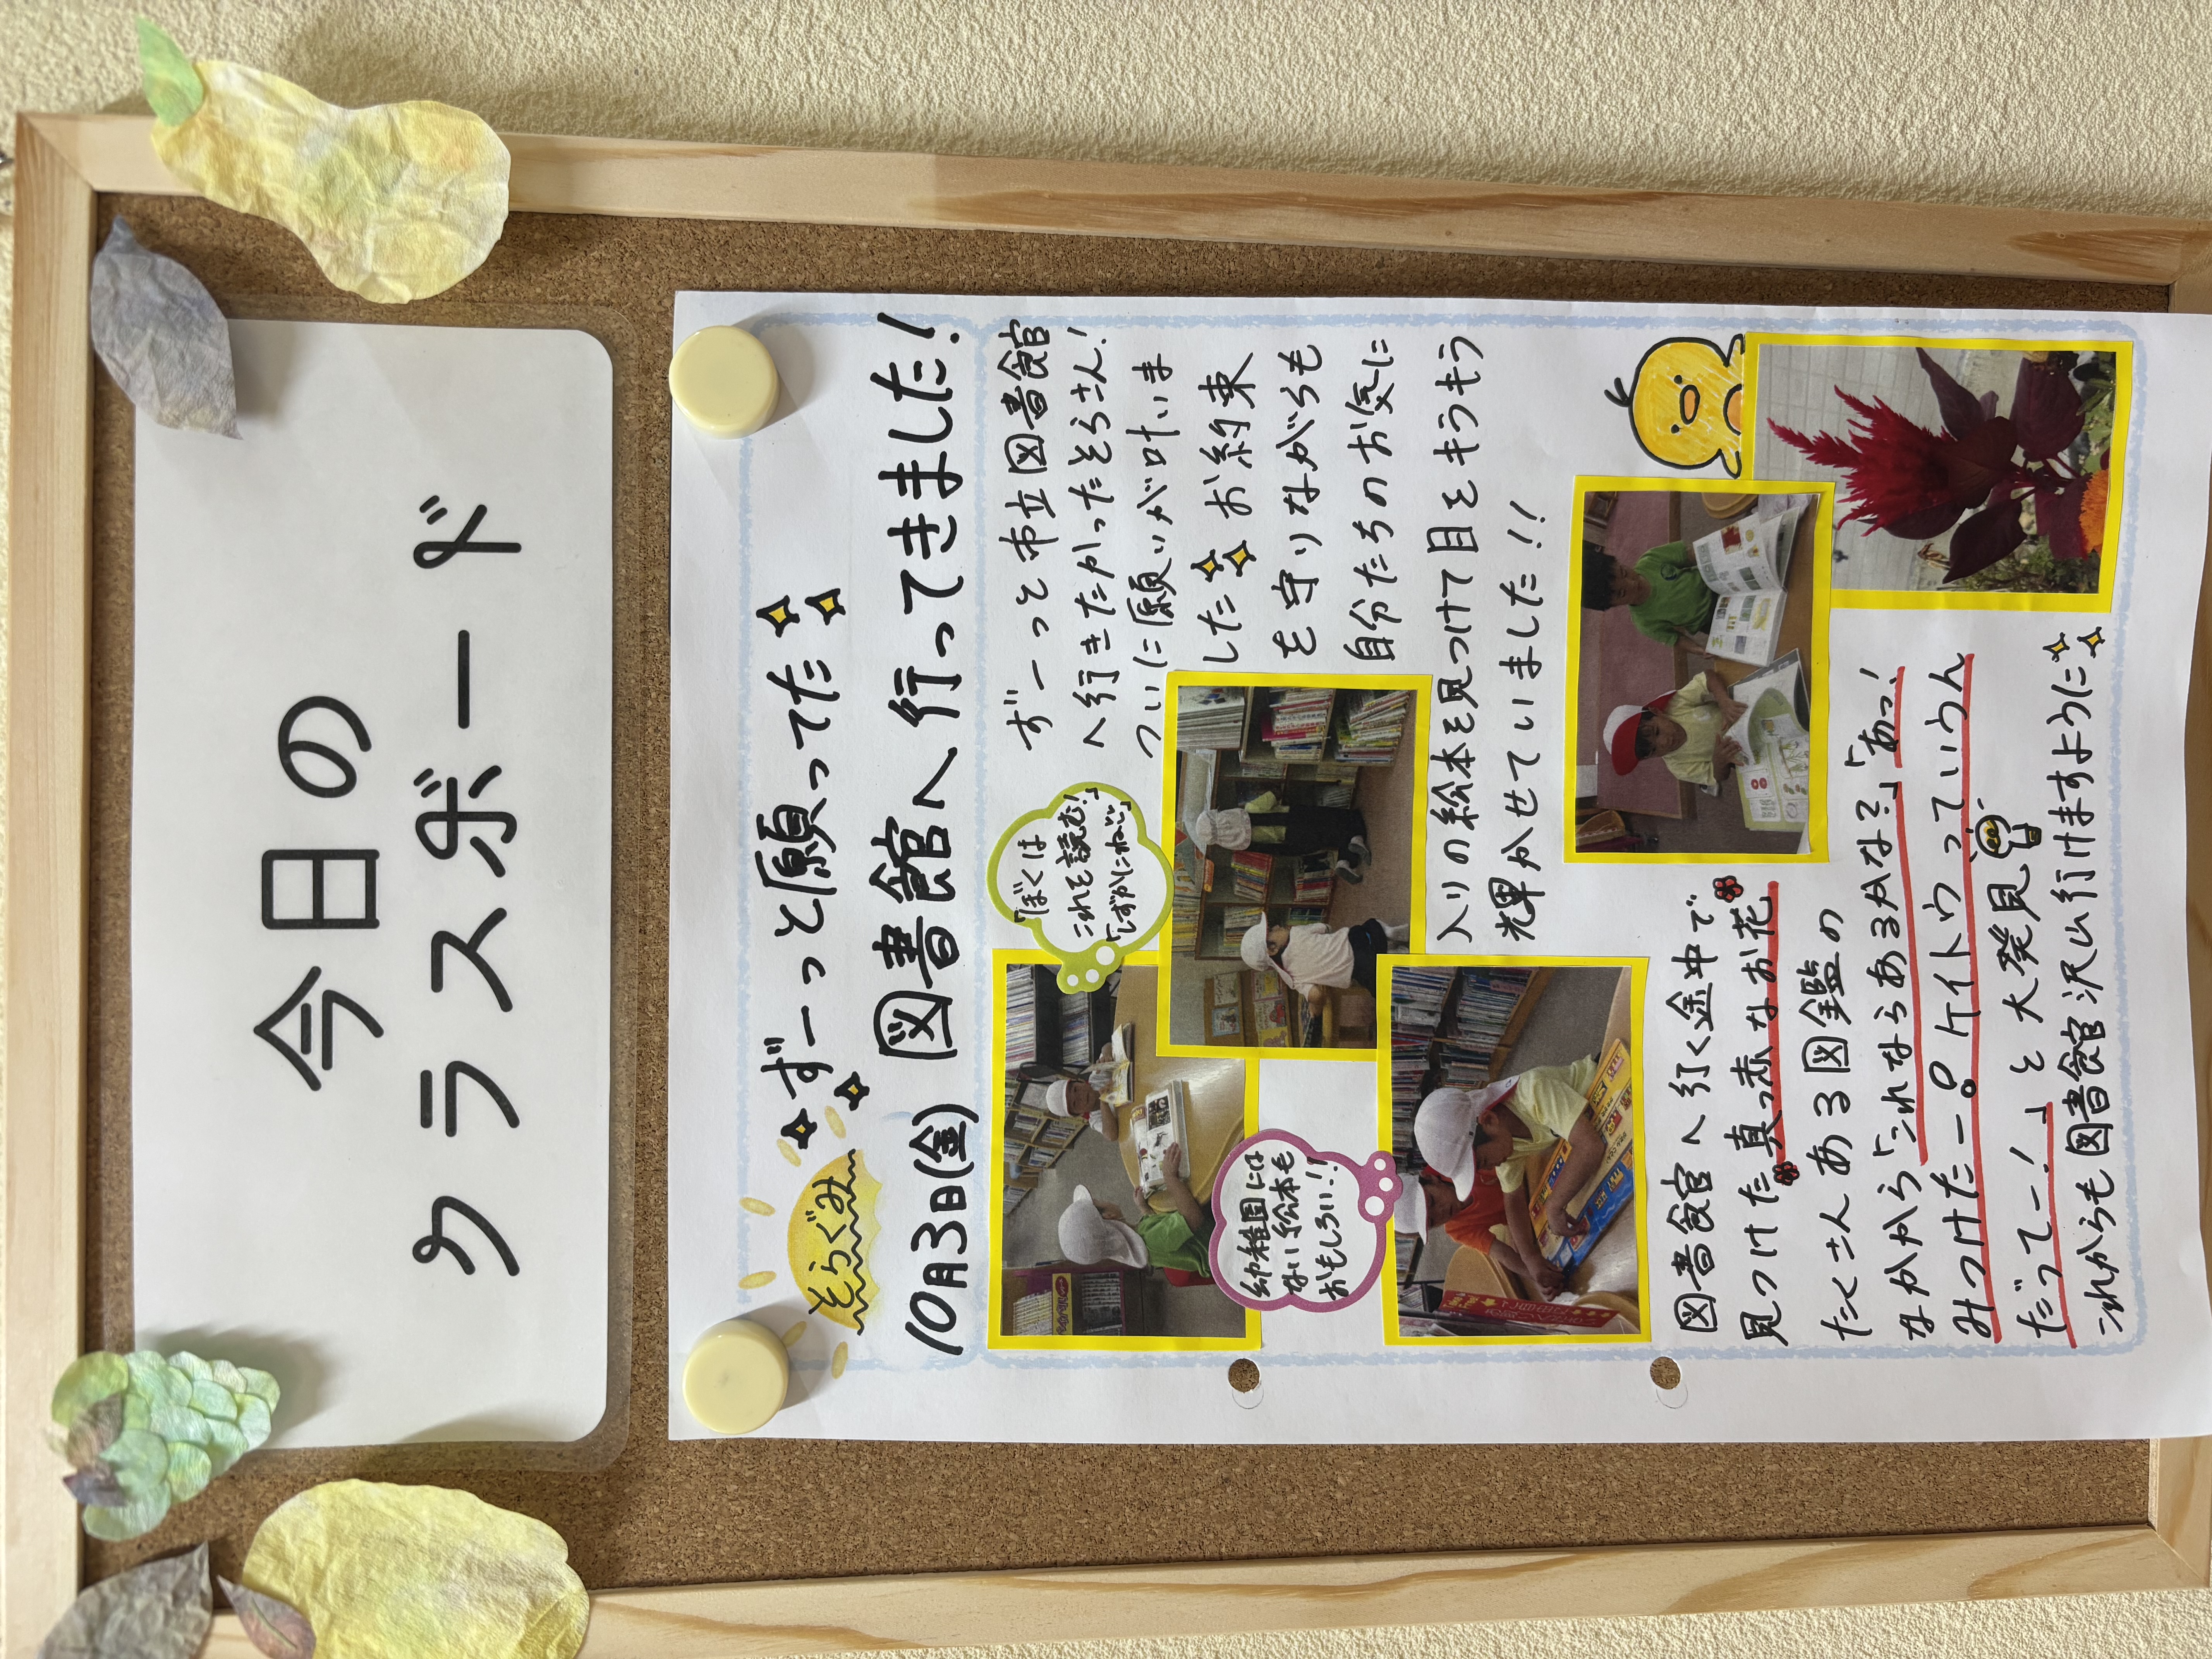 今日の
クラスボード
そらぐみ
ずーっと願ってた
10月3日(金) 図書館へ行ってきました!
「ぼくは
これを読む!」
「しずかにね」
ずーっと市立図書館
へ行きたかったそらさん!
ついに願いが叶いま
した お約束
を守りながらも
自分たちのお気に
入りの絵本を見つけて目をキラキラ
輝かせていました!!
幼稚園には
ない絵本も
おもしろい!!
図書館へ行く途中で
見つけた真っ赤なお花
たくさんある図鑑の
なかから「これならあるかな?」「あっ!
みつけたー。ケイトウっていうん
だってー!」と大発見
これからも図書館沢山行けますように